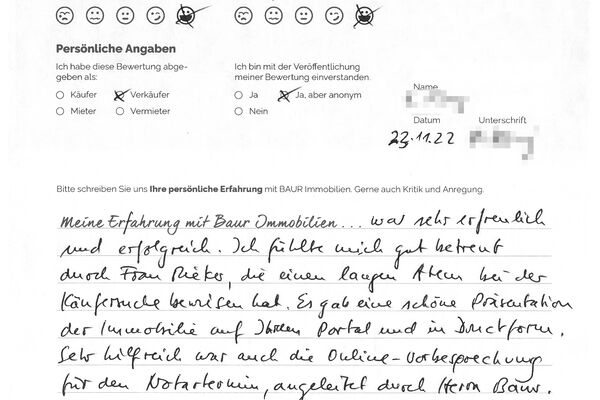 Persönliche Angaben
Ich habe diese Bewertung abge-
geben als:
Käufer Verkäufer
Mieter Vermieter
Ich bin mit der Veröffentlichung
meiner Bewertung einverstanden.
Ja Ja, aber anonym
Nein
Name
Datum Unterschrift
23.11.22
Bitte schreiben Sie uns Ihre persönliche Erfahrung mit BAUR Immobilien. Gerne auch Kritik und Anregung.
Meine Erfahrung mit Baur Immobilien... war sehr erfreulich
und erfolgreich. Ich fühlte mich gut betreut
durch Frau Rieker, die einen langen Atem bei der
Käufersuche bewiesen hat. Es gab eine schöne Präsentation
der Immobilie auf Ihrem Portal und in Druckform.
Sehr hilfreich war auch die Online-Vorbesprechung
für den Notartermin, angeleitet durch Herrn Baur.